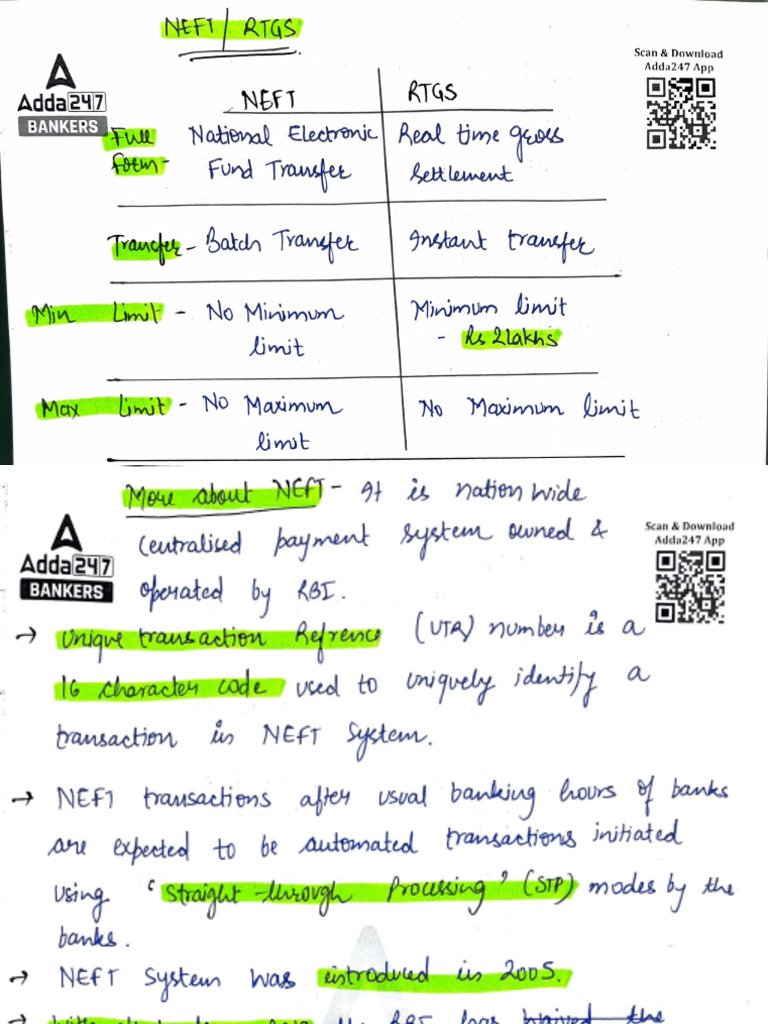 NEFT | RTGS
Scan & Download
Adda247 App
Adda247
BANKERS
NEFT RTGS
Full National Electronic Real time gross
form- Fund Transfer Settlement
Transfer - Batch Transfer Instant transfer
Min Limit - No Minimum Minimum limit
limit - Rs 2 lakhs
Max limit - No Maximum No Maximum limit
limit
More about NEFT - It is nation wide
Scan & Download
Adda247 App
Adda247
BANKERS
Centralised payment system owned &
operated by RBI.
→ Unique transaction Refrence (UTR) number is a
16 character code used to uniquely identify a
transaction in NEFT System.
→ NEFT transactions after usual banking hours of banks
are expected to be automated transactions initiated
using 'Straight-through Processing' (STP) modes by the
banks.
→ NEFT System was introduced in 2005.
→ RBI has waived the